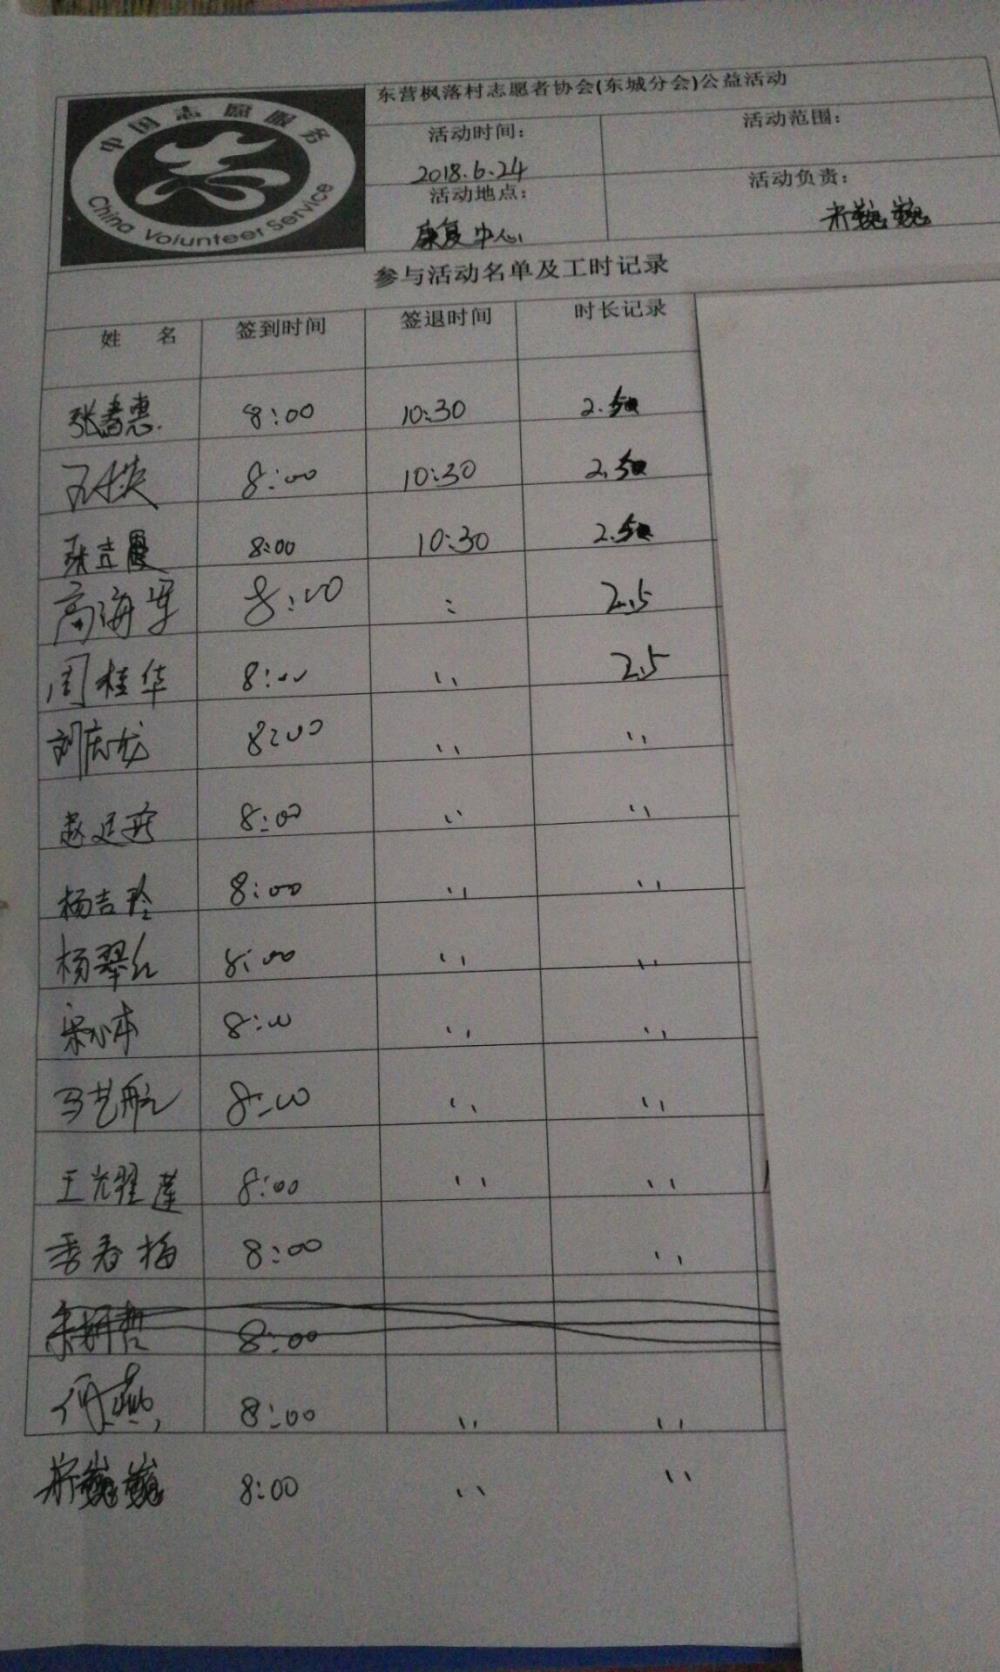 中国志愿服务
China Volunteer Service
东营枫落村志愿者协会(东城分会)公益活动
活动时间： 活动范围：
2018.6.24
活动地点： 活动负责：
康复中心 巍巍
参与活动名单及工时记录
姓 名 签到时间 签退时间 时长记录
张惠 8:00 10:30 2.5
8:00 10:30 2.5
张立霞 8:00 10:30 2.5
高海军 8:00 : 2.5
周桂华 8:00 '' 2.5
刘庆龙 8:00 '' ''
赵延燕 8:00 '' ''
杨吉玲 8:00 '' ''
杨翠红 8:00 '' ''
宋小本 8:00 '' ''
马艺航 8:00 '' ''
王光耀 莲 8:00 '' ''
季春梅 8:00 ''
8:00
何燕 8:00 '' ''
巍巍 8:00 '' ''